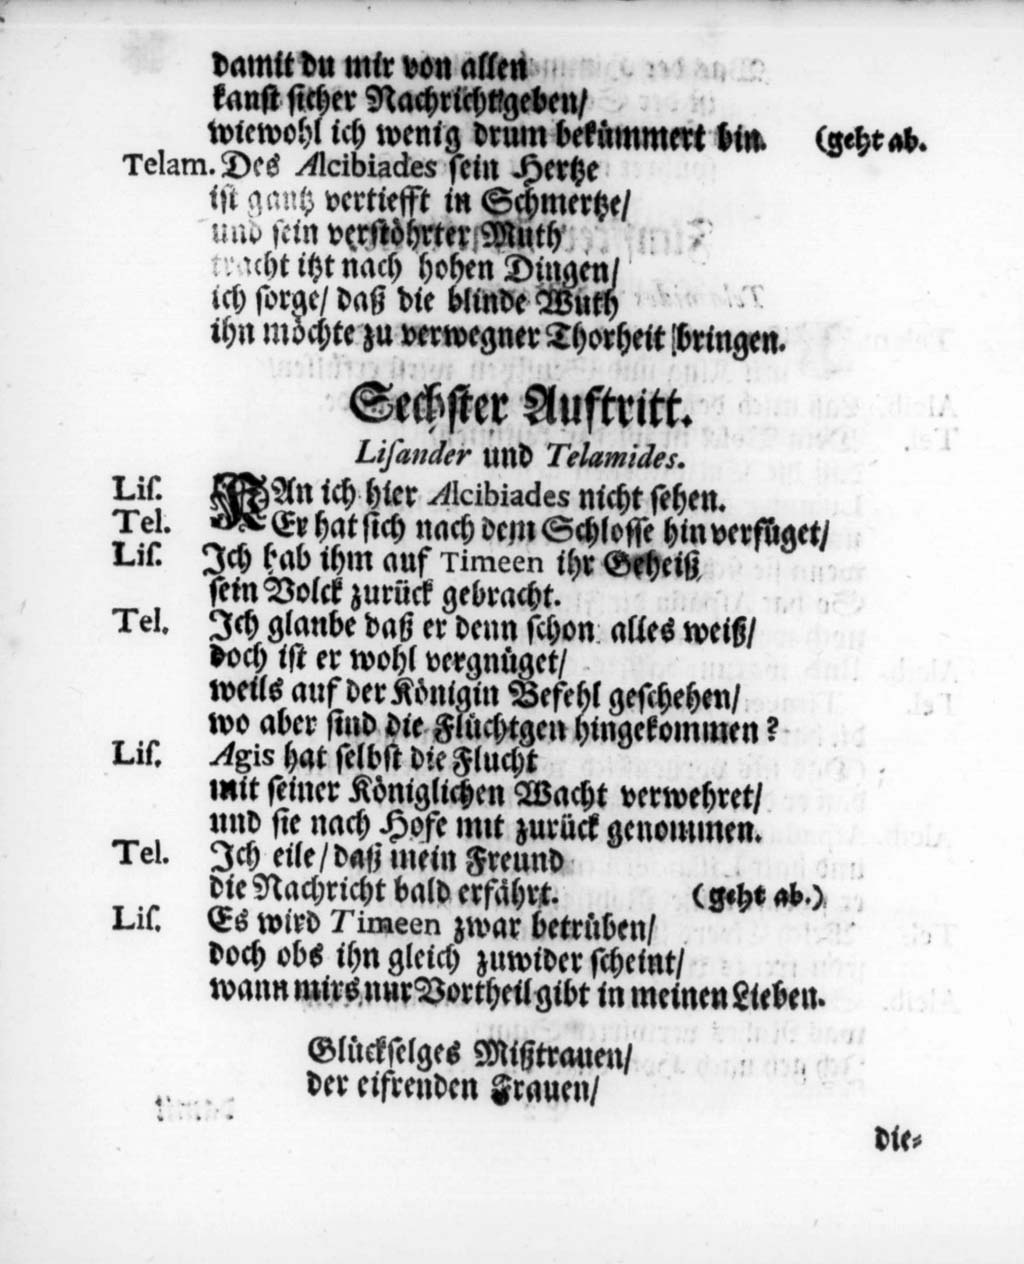 damit du mir von allen
kanst sicher Nachricht geben/
wiewohl ich wenig drum bekümmert bin. (geht ab.
Telam. Des Alcibiades sein Hertze
ist gantz vertiefft in Schmertze/
und sein verstöhrter Muth
tracht itzt nach hohen Dingen/
ich sorge/ daß die blinde Wuth
ihn möchte zu verwegner Thorheit bringen.
Sechster Auftritt.
Lisander und Telamides.
Lis. KAn ich hier Alcibiades nicht sehen.
Tel. Er hat sich nach dem Schlosse hin verfüget/
Lis. Ich hab ihm auf Timeen ihr Geheiß
sein Volck zurück gebracht.
Tel. Ich glaube daß er denn schon alles weiß/
doch ist er wohl vergnüget/
weils auf der Königin Befehl geschehen/
wo aber sind die Flüchtgen hingekommen?
Lis. Agis hat selbst die Flucht
mit seiner Königlichen Wacht verwehret/
und sie nach Hofe mit zurück genommen.
Tel. Ich eile/ daß mein Freund
die Nachricht bald erfährt. (geht ab.)
Lis. Es wird Timeen zwar betrüben/
doch obs ihn gleich zuwider scheint/
wann mirs nur Vortheil gibt in meinen Lieben.
Glückselges Mißtrauen/
der eifrenden Frauen/
die=